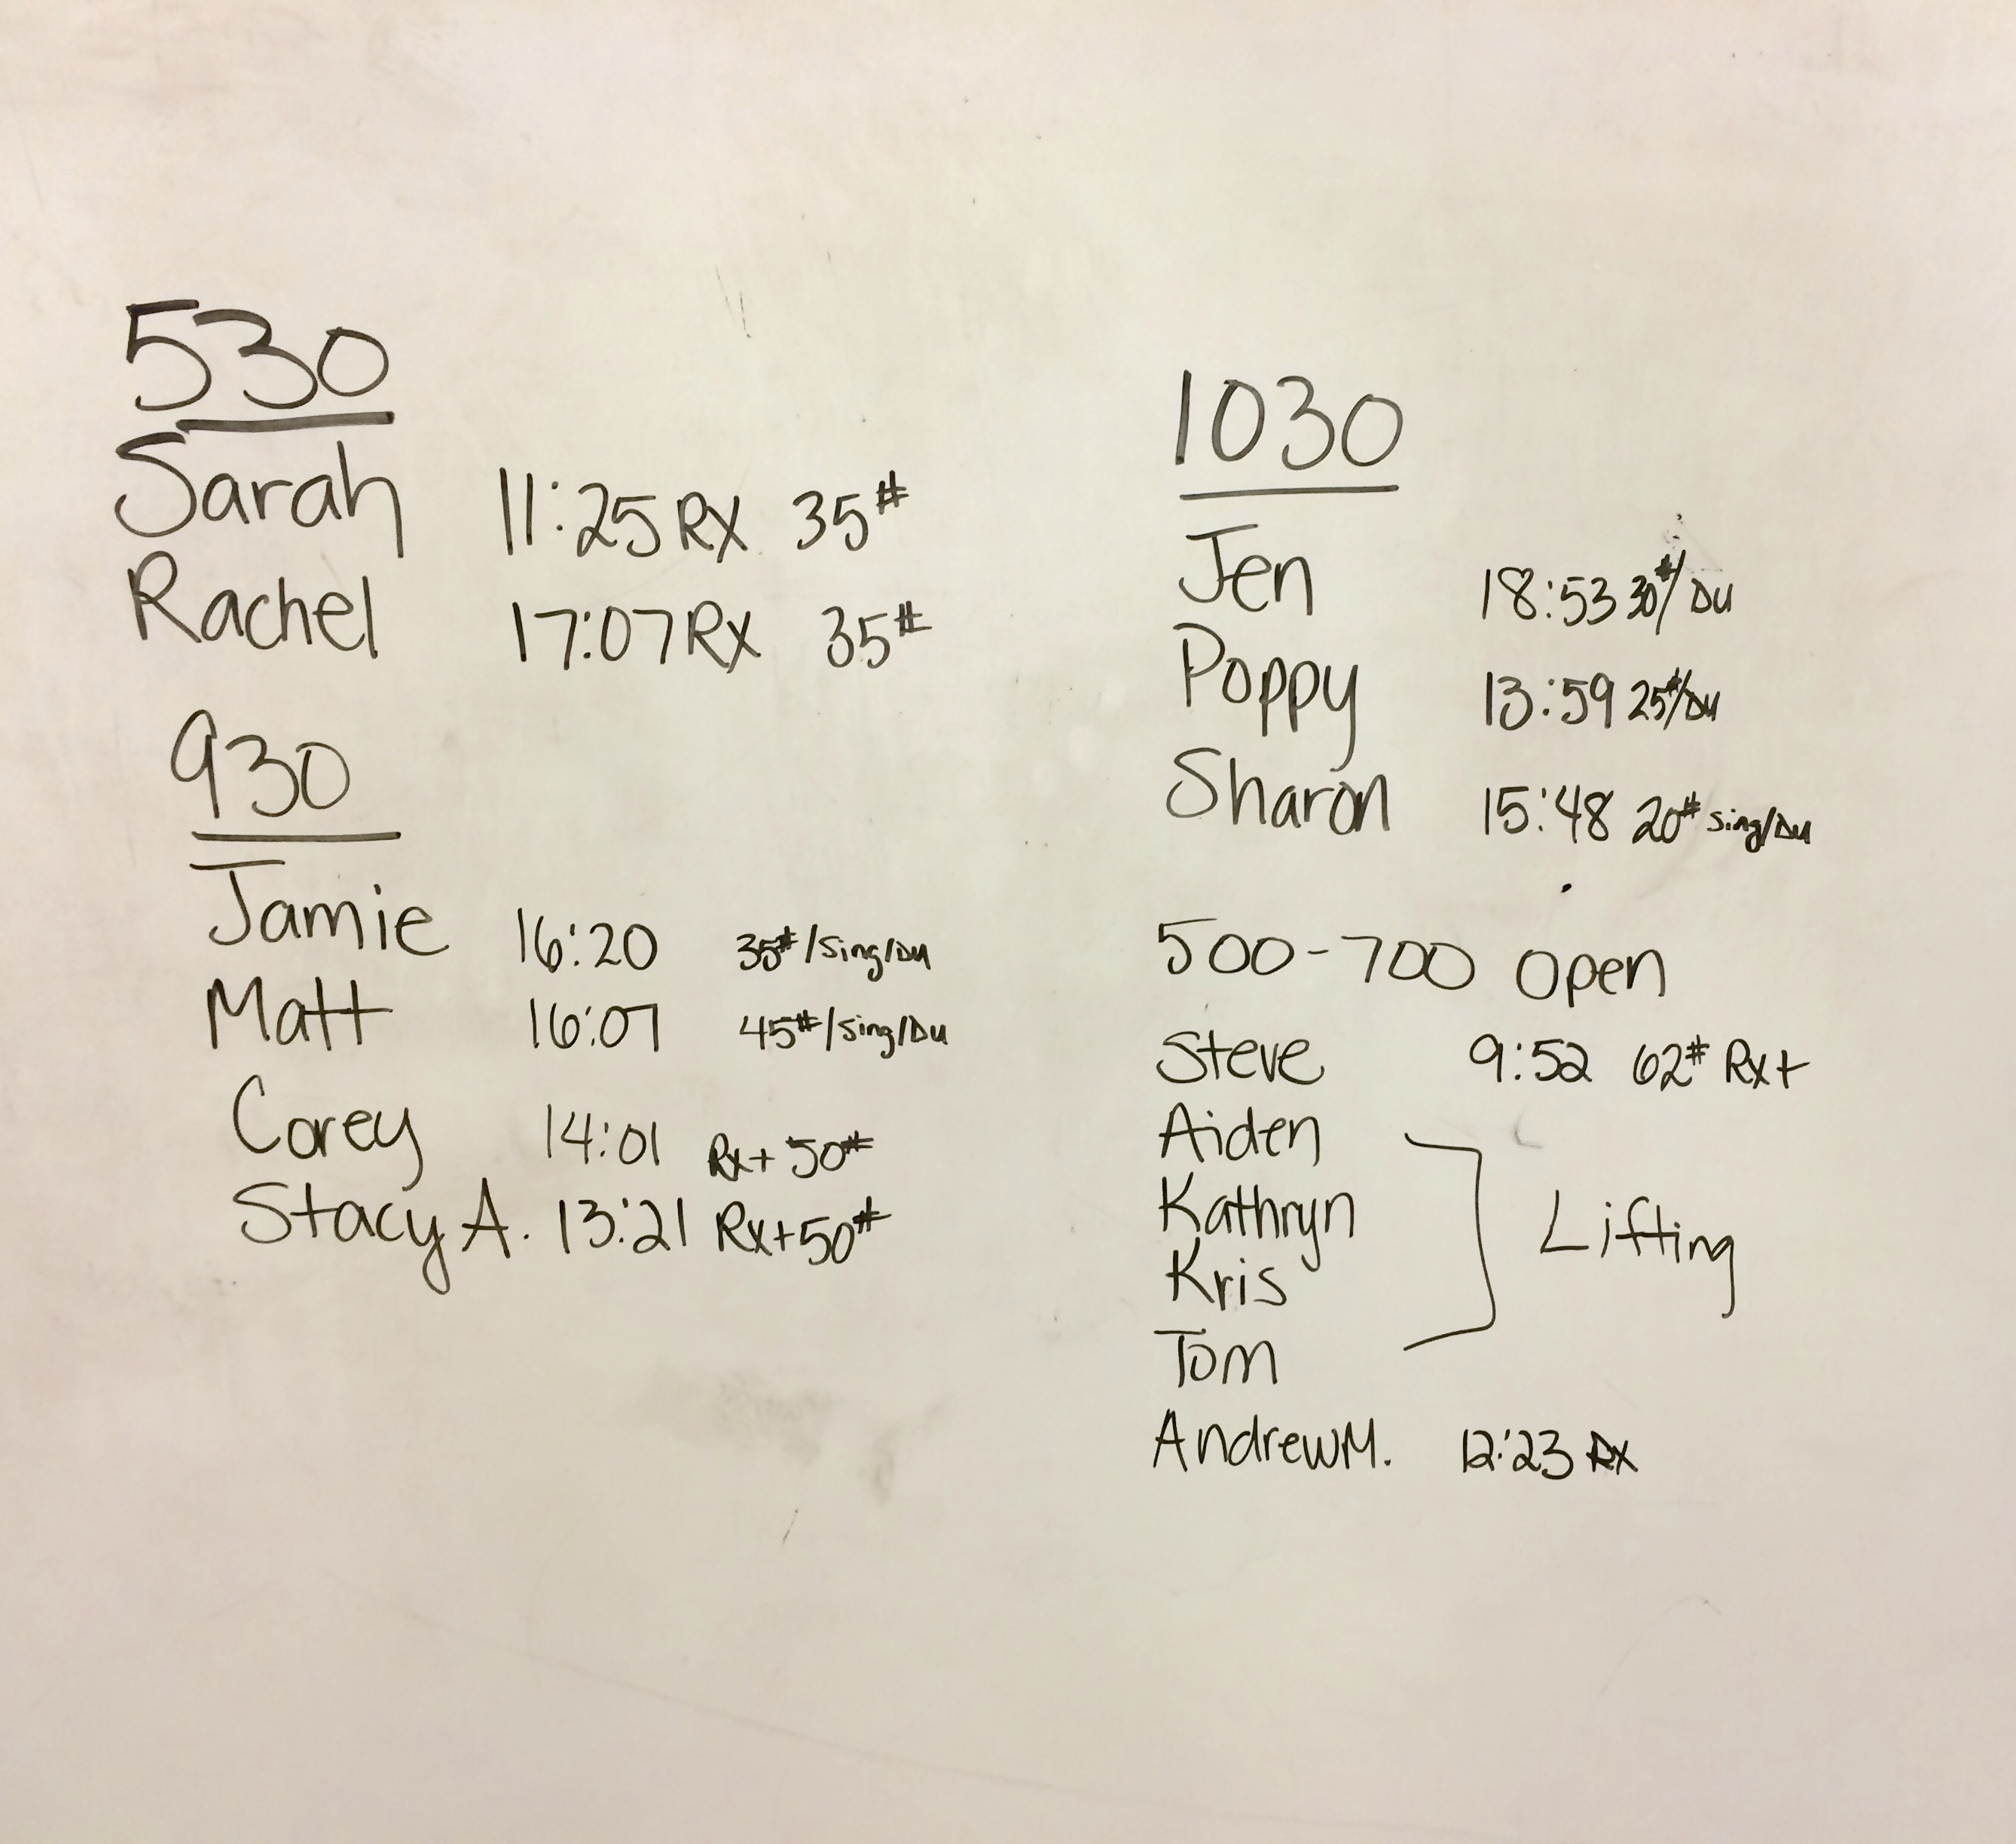 530
Sarah 11:25 RX 35#
Rachel 17:07 RX 35#
930
Jamie 16:20 35#/Sing/Du
Matt 16:07 45#/Sing/Du
Corey 14:01 Rx+ 50#
Stacy A. 13:21 Rx+ 50#
1030
Jen 18:53 30#/Du
Poppy 13:59 25#/Du
Sharon 15:48 20# Sing/Du
500-700 Open
Steve 9:52 62# Rx+
Aiden
Kathryn
Lifting
Kris
Tom
Andrew M. 12:23 Rx